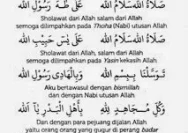 صَلَاةُ اللهِ سَلَامُ اللهِ عَلَى طٰهَ رَسُوْلِ اللهِ
Sholawat dari Allah, salam dari Allah
semoga dilimpahkan pada Thoha (Nabi) utusan Allah
صَلَاةُ اللهِ سَلَامُ اللهِ عَلَى يٰسٓ حَبِيْبِ اللهِ
Sholawat dari Allah, salam dari Allah
semoga dilimpahkan pada Yasin kekasih Allah
تَوَسَّلْنَا بِبِسْمِ اللهِ وَبِالْهَادِى رَسُوْلِ اللهِ
Aku bertawasul dengan bismillah
dan dengan Nabi utusan Allah
وَكُلِّ مُجَاهِدٍ لِلّٰهِ بِأَهْلِ الْبَدْرِ يَا اللهُ
Dan dengan para pejuang dijalan Allah
yaitu orang orang yang gugur di perang badar